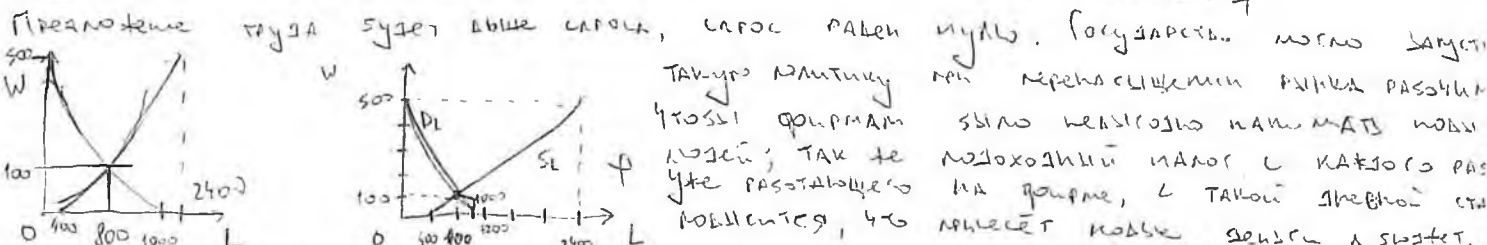 Предложение труда будет выше спроса, спрос равен нулю. Государство могло запусти
такую политику при перенасыщении рынка рабочим
чтобы фирмам было невыгодно нанимать новы
людей; так же подоходный налог с каждого раб
уже работающего на фирме, с такой дневной ста
повысится, что принесёт новые деньги в бюджет.
500
W
100
0 400 800 1000 L
2400
W
500
DL
SL
100
0 400 800 1000 1200 2400 L